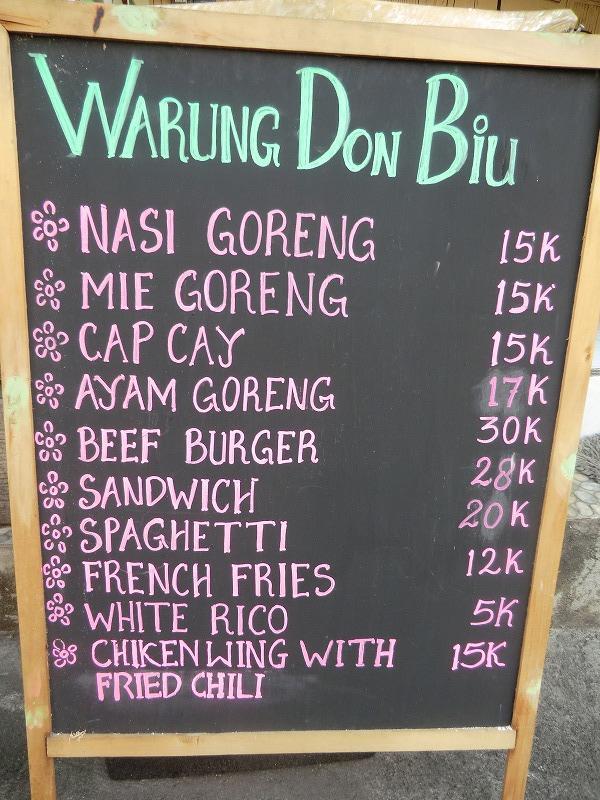 WARUNG DON BIU
NASI GORENG 15K
MIE GORENG 15K
CAP CAY 15K
AYAM GORENG 17K
BEEF BURGER 30K
SANDWICH 28K
SPAGHETTI 20K
FRENCH FRIES 12K
WHITE RICO 5K
CHIKEN WING WITH 15K
FRIED CHILI